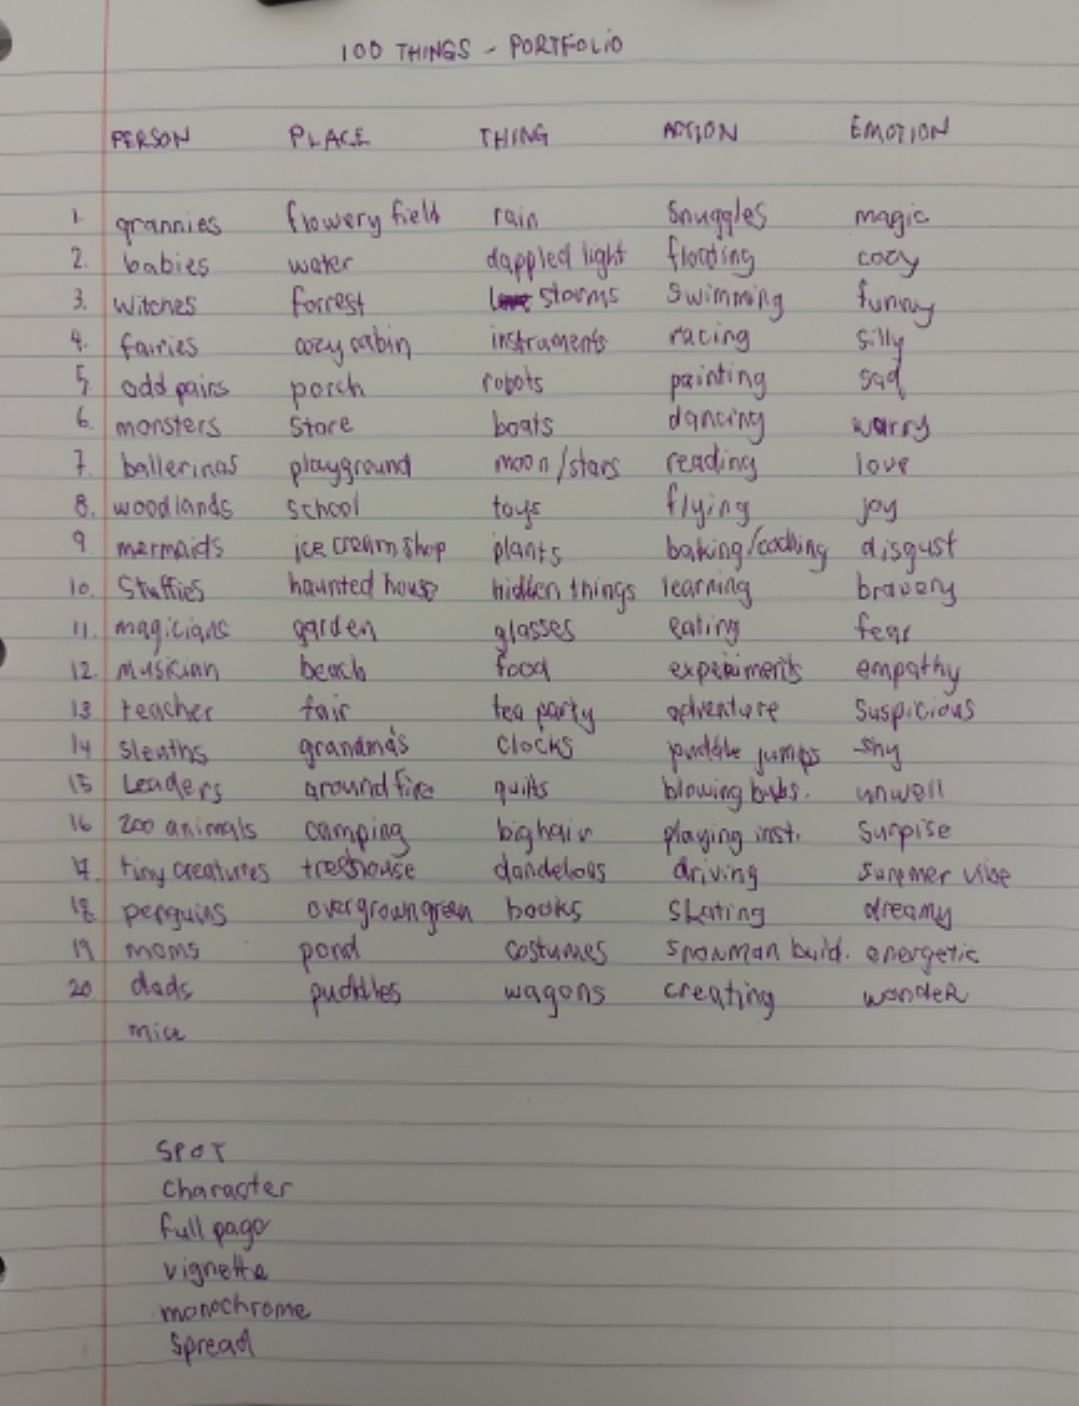 100 THINGS - PORTFOLIO
PERSON PLACE THING ACTION EMOTION
1. grannies flowery field rain Snuggles magic
2. babies water dappled light floating cozy
3. witches forrest storms swimming funny
4. fairies cozy cabin instruments racing silly
5. odd pairs porch robots painting sad
6. monsters store boats dancing worry
7. ballerinas playground moon/stars reading love
8. woodlands school toys flying joy
9 mermaids ice cream shop plants baking/cooking disgust
10. Stuffies haunted house hidden things learning bravery
11. magicians garden glasses eating fear
12. musician beach food experiments empathy
13 teacher fair tea party adventure suspicious
14 sleuths grandma's clocks puddle jumps shy
15 Leaders around fire quilts blowing bubs. unwell
16 zoo animals camping big hair playing inst. surpise
17. tiny creatures treehouse dandelous driving summer vibe
18 penguins overgrown green books skating dreamy
19 moms pond costumes snowman build. energetic
20 dads puddles wagons creating wonder
mice
SPOT
Character
full page
vignette
monochrome
Spread